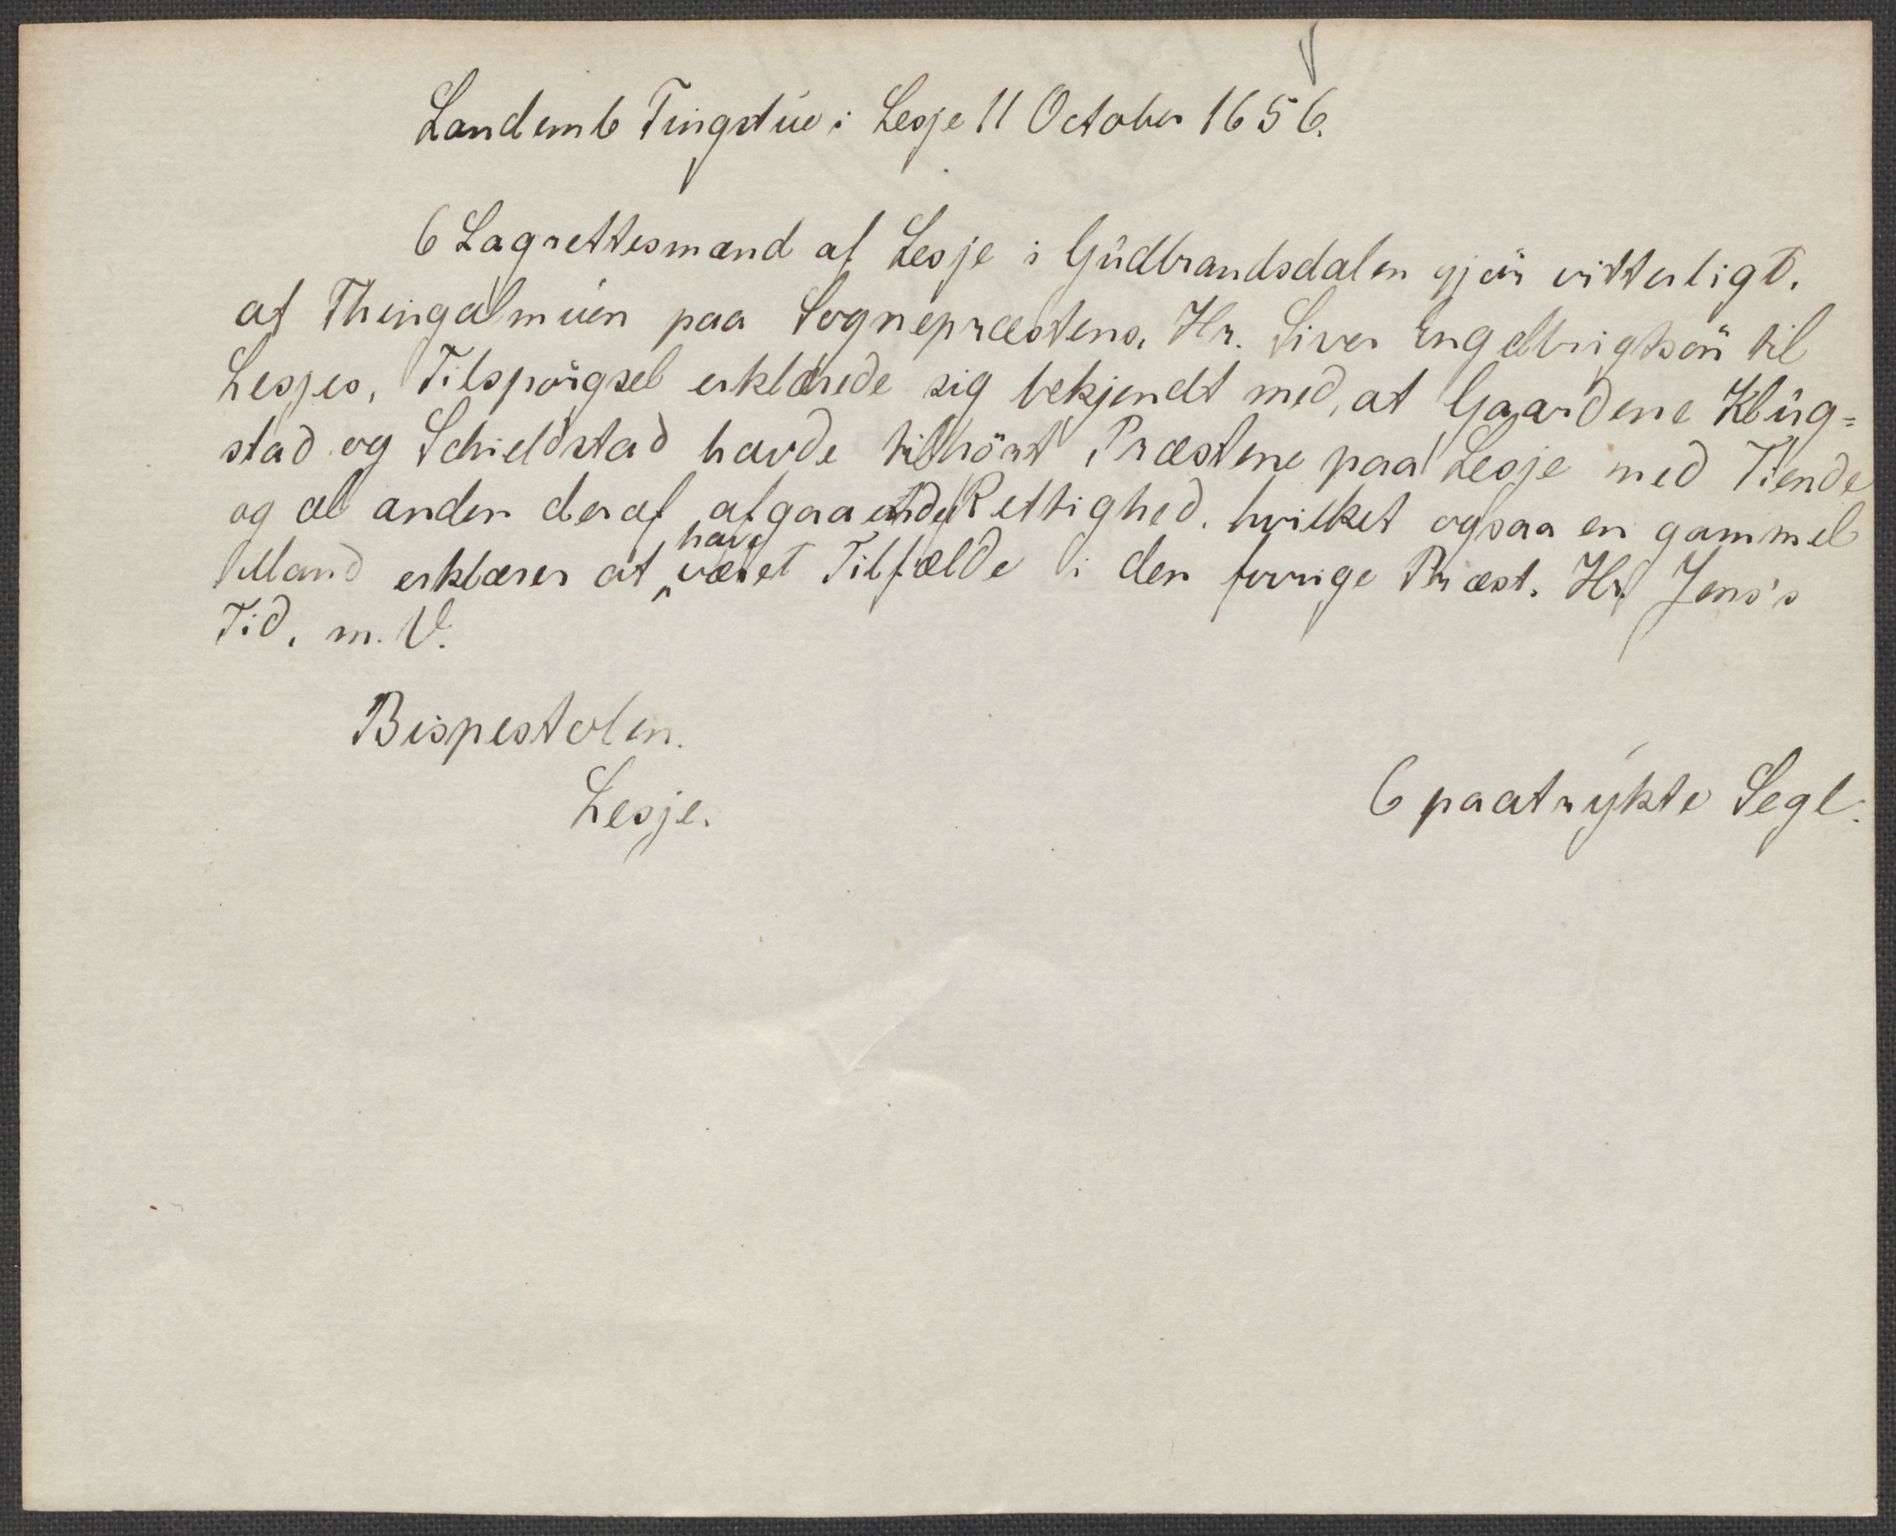 Landemb Tingstue i Lesje 11 October 1656.
6 Lagrettesmænd af Lesje i Gudbrandsdalen gjör vitterligt,
at Thingalmuen paa Sognepræstens, Hr. Siver Engelbrigtsön til
Lesjes, Tilspörgsel erklærede sig bekjendt med, at Gaardene Klüg=
stad og Schieldstad havde tilhört Præstene paa Lesje med Tiende
og al anden deraf afgaaende Rettighed, hvilket ogsaa en gammel
Mand erklærer at have været Tilfælde i den forrige Præst, Hr. Jens's
Tid, m. V.
Bispestolen.
Lesje.
6 paatrykte Segl.